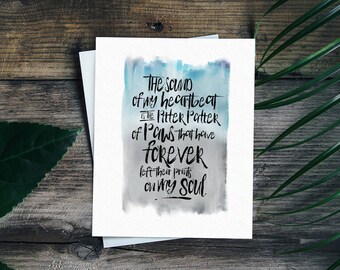 THE SOUND
of my heartbeat
IS THE PITTER PATTER
of PAWS that have
FOREVER
left their prints
on my SOUL.